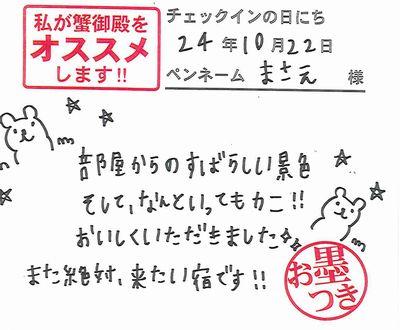 私が蟹御殿を
オススメ
します!!
チェックインの日にち
24年10月22日
ペンネーム まさえ 様
部屋からのすばらしい景色
そして、なんといってもカニ!!
おいしくいただきました☆
また絶対、来たい宿です!!
お墨つき